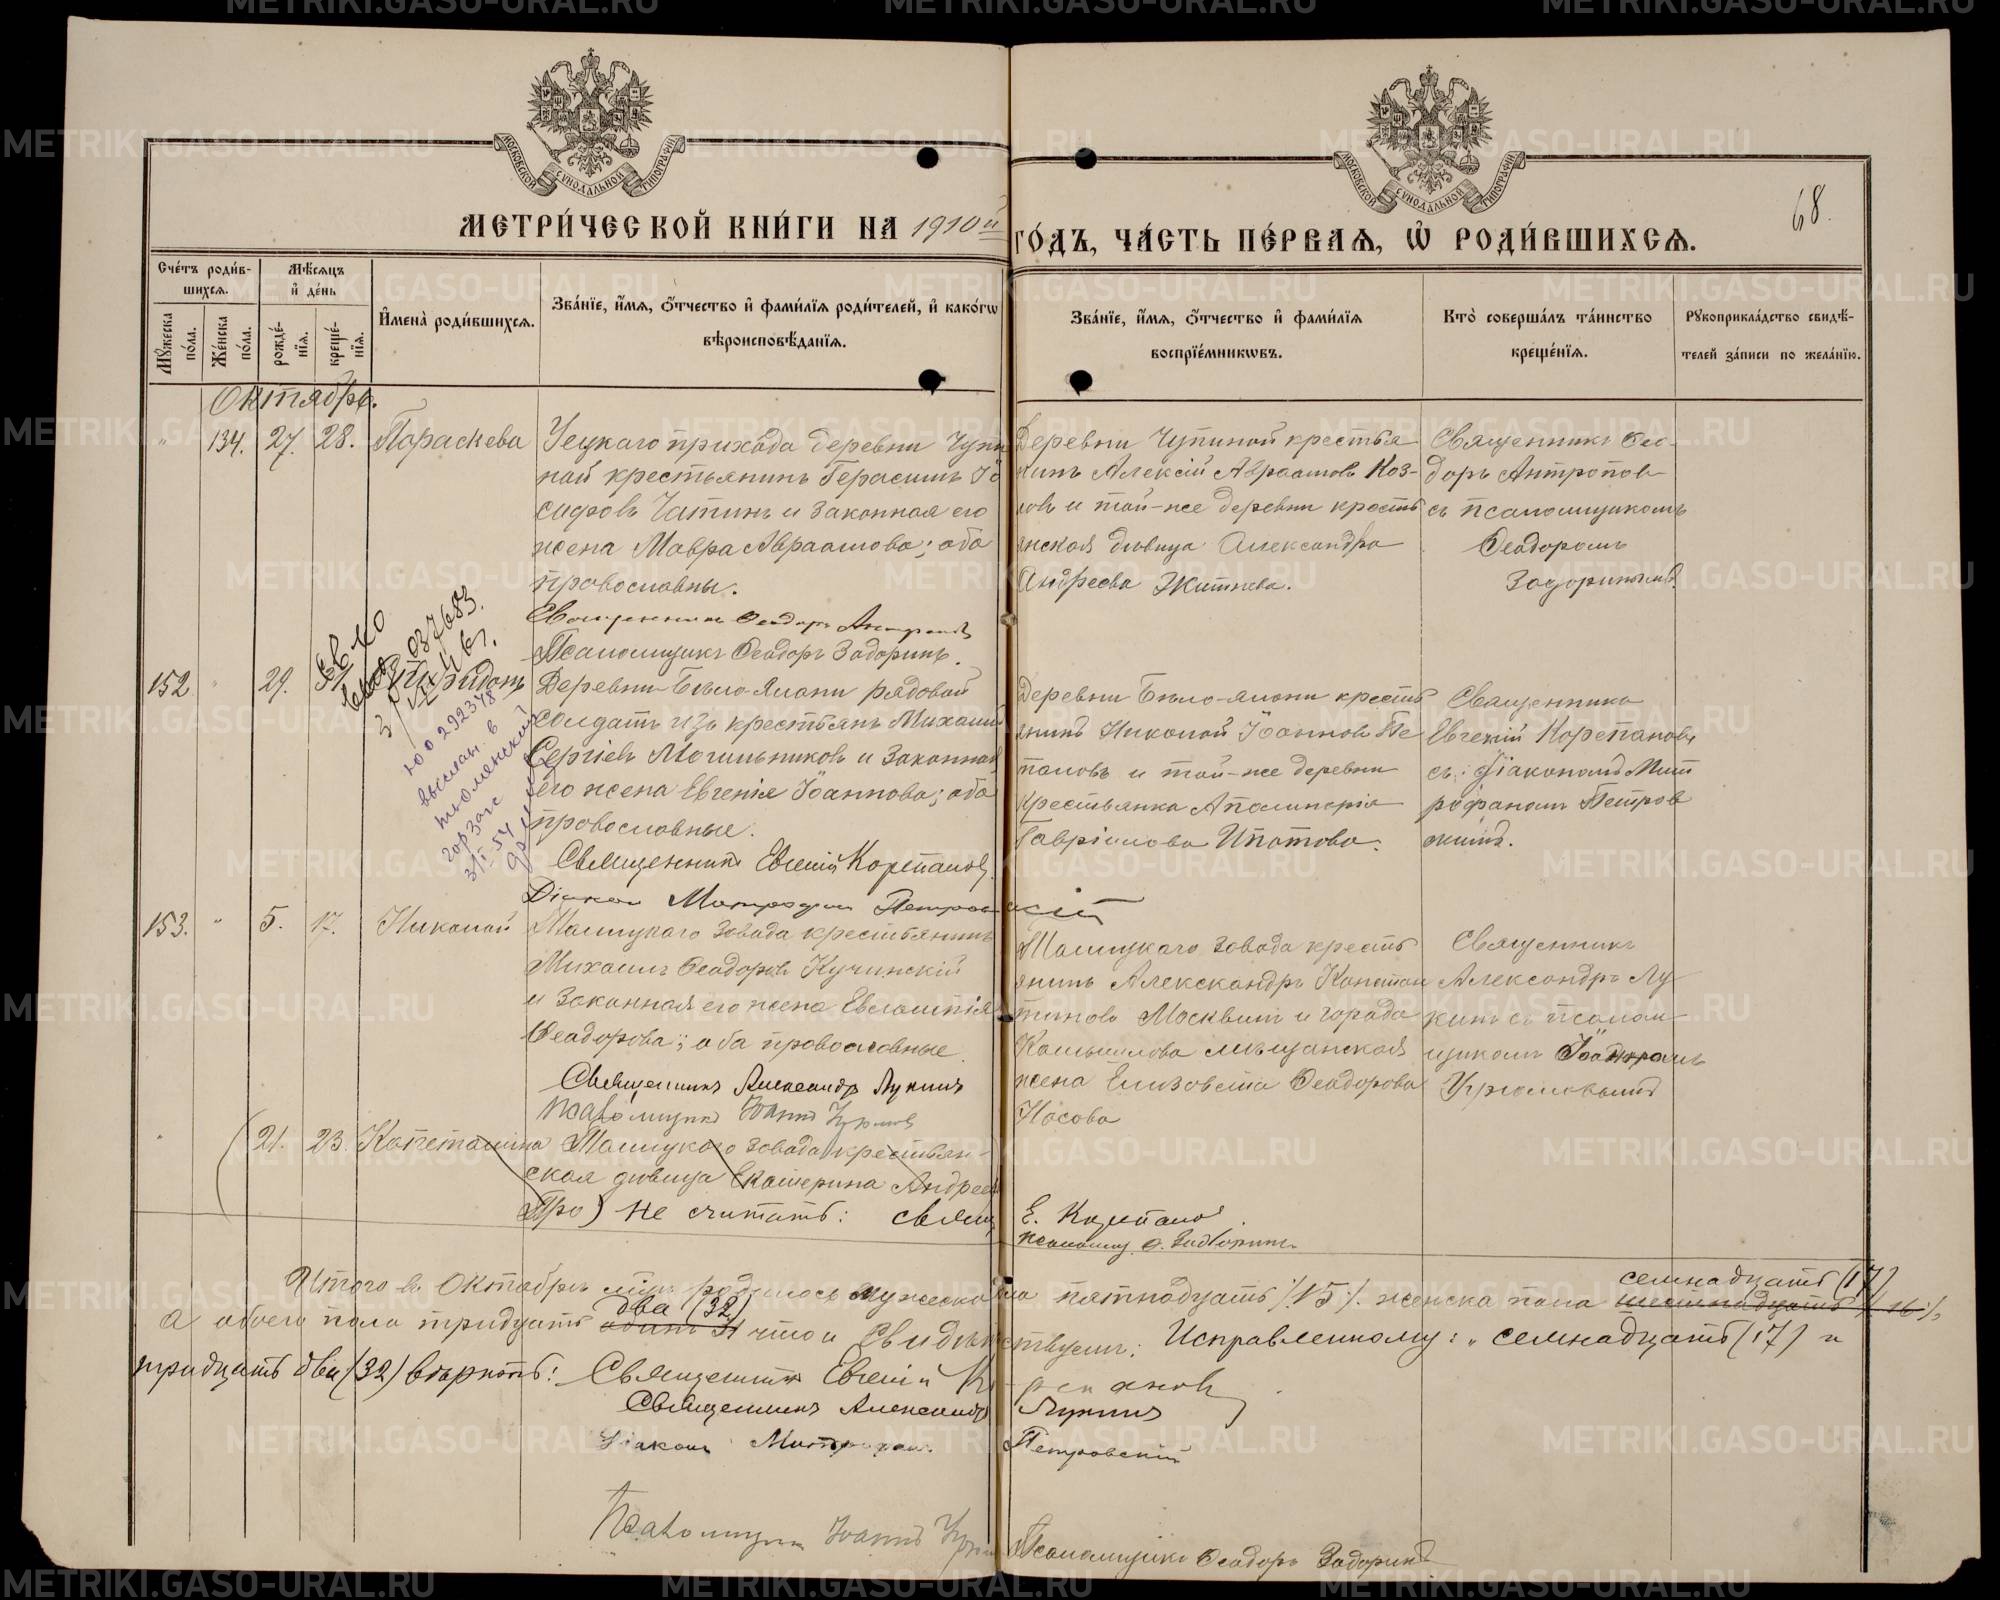 МЕТРИ́ЧЕСКОЙ КНИ́ГИ НА 1910й ГО́ДЪ, ЧА́СТЬ ПЕ́РВАЯ, Ѡ҆ РОДИ́ВШИХСЯ.
68.
МОСКОВСКОЙ СѴНОДАЛЬНОЙ ТИПОГРАФІИ
МОСКОВСКОЙ СѴНОДАЛЬНОЙ ТИПОГРАФІИ
Сче́тъ роди́в-
шихся.
Мѣ́сяцъ
и҆ де́нь
Мꙋ́жеска по́ла.
Же́нска по́ла.
рожде́-
нїя.
креще́-
нїя.
И҆мена̀ роди́вшихся.
Зва́нїе, и҆́мя, ѻ҆́тчество и҆ фами́лїя роди́телей, и҆ како́гѡ
вѣроисповѣ́данїя.
Зва́нїе, и҆́мя, ѻ҆́тчество и҆ фами́лїя
воспрїе́мникѡвъ.
Кто̀ соверша́лъ та́инство
креще́нїя.
Рꙋкоприкла́дство свидѣ́-
телей за́писи по жела́нїю.
Октябрь.
" 134. 27. 28. Параскева
Уецкаго прихода деревни Чупи
ной крестьянинъ Герасимъ Іо
сифовъ Чатинъ и законная его
жена Мавра Авраамова; оба
православны.
Священникъ Феодоръ Антропов
Псаломщикъ Феодоръ Задоринъ.
Деревни Чупиной крестья
нинъ Алексій Авраамовъ Коз-
ловъ и той-же деревни кресть
янская дѣвица Александра
Андреева Житнева.
Священникъ Фео-
доръ Антропов
съ псаломщикомъ
Феодоромъ
Задоринымъ.
152 " 29. 31 Спиридонъ
037683.
ЮО 292378
выслан. в
тюменский
горзагс
3/I-54
Деревни Бѣло-Ялани рядовой
солдатъ изъ крестьянъ Михаилъ
Сергіевъ Могильниковъ и законная
его жена Евгенія Іоаннова; оба
православные.
Священникъ Евгеній Корепановъ.
Діаконъ Митрофанъ Петровскій
Деревни Бѣло-ялани кресть
янинъ Николай Іоанновъ По
таповъ и той-же деревни
крестьянка Аполинарія
Гавріилова Ипатова.
Священникъ
Евгеній Корепановъ
съ діакономъ Мит
рофаномъ Петров
скимъ.
153. " 5. 17. Николай
Талицкаго завода крестьянинъ
Михаилъ Феодоровъ Кучинскій
и законная его жена Евлампія
Феодорова; оба православные.
Священникъ Александръ Лукинъ
Псаломщикъ Іоаннъ
Талицкаго завода кресть
янинъ Александръ Констан
тиновъ Москвинъ и города
Камышлова мѣщанская
жена Елизавета Феодорова
Носова
Священникъ
Александръ Лу
кинъ съ псалом
щикомъ Іоанномъ
" (21. 23. Капетолина Талицкаго завода крестьян-
ская дѣвица Екатерина Андрее
Про) Не считать: свящ Е. Корепановъ.
псаломщ. Ф. Задоринъ.
Итого въ Октябрѣ мѣс. родилось мужеска пола пятнадцать /15/. женска пола шестнадцать /16/. семнадцать (17)
А обоего пола тридцать одинъ 31 два (32) что и Свидѣтельствуемъ: Исправленному: "семнадцать (17) и
тридцать два (32) вѣрить: Священникъ Евгеній Корепановъ
Священникъ Александръ Лукинъ
Діаконъ Митрофанъ Петровскій
Псаломщикъ Іоаннъ
Псаломщикъ Феодоръ Задоринъ
METRIKI.GASO-URAL.RU